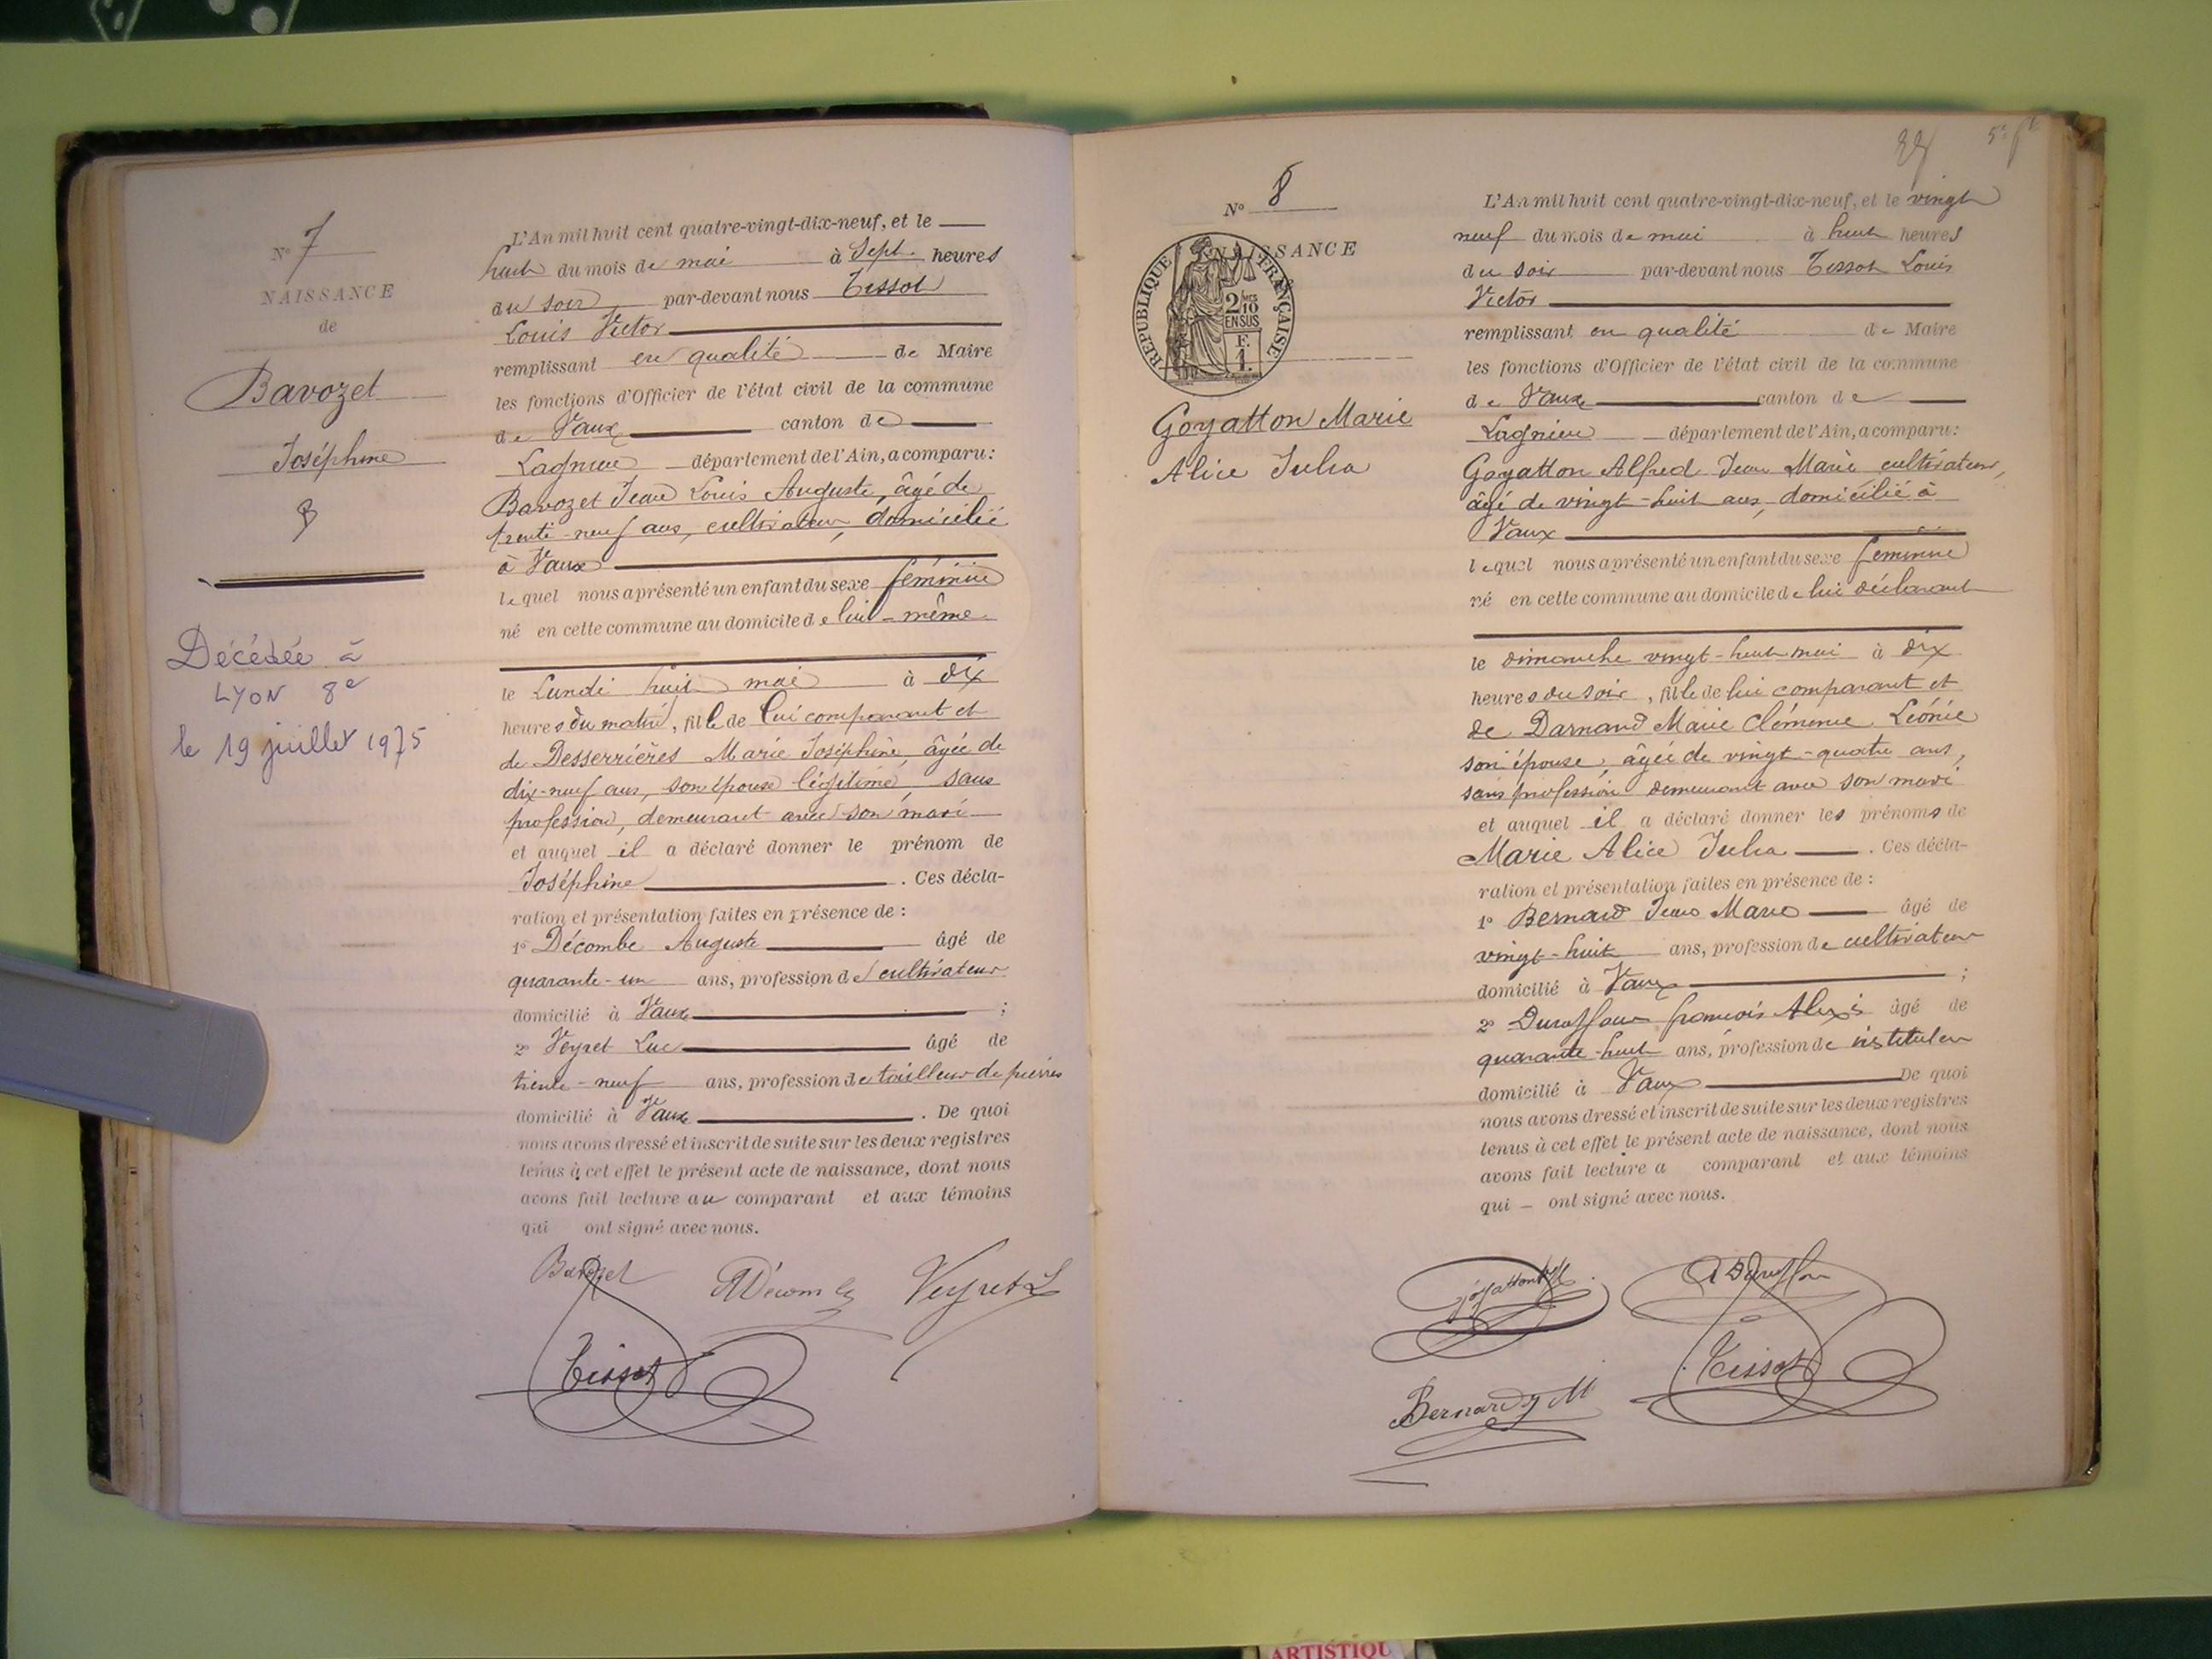 N° 7
NAISSANCE
de
Bavozet
Joséphine
Décédée à
LYON 8e
le 19 juillet 1975
L'An mil huit cent quatre-vingt-dix-neuf, et le
huit du mois de mai à Sept heures
du soir par-devant nous Tissot
Louis Victor
remplissant en qualité de Maire
les fonctions d'Officier de l'état civil de la commune
de Vaux canton de
Lagnieu département de l'Ain, a comparu:
Bavozet Jean Louis Auguste, âgé de
trente-neuf ans, cultivateur, domicilié
à Vaux
lequel nous a présenté un enfant du sexe féminin
né en cette commune au domicile de lui-même
le Lundi huit mai à dix
heures du matin, fille de lui comparant et
de Desserrières Marie Joséphine, âgée de
dix-neuf ans, son épouse légitime, sans
profession, demeurant avec son mari
et auquel il a déclaré donner le prénom de
Joséphine . Ces décla-
ration et présentation faites en présence de :
1° Décombe Auguste âgé de
quarante-un ans, profession de cultivateur
domicilié à Vaux ;
2° Veyret Luc âgé de
trente-neuf ans, profession de tailleur de pierres
domicilié à Vaux . De quoi
nous avons dressé et inscrit de suite sur les deux registres
tenus à cet effet le présent acte de naissance, dont nous
avons fait lecture au comparant et aux témoins
qui ont signé avec nous.
Bavozet ADécombe Veyret L
Tissot
N° 8
NAISSANCE
RÉPUBLIQUE FRANÇAISE
2/10
EN SUS
F.
1.
Goyatton Marie
Alice Julia
L'An mil huit cent quatre-vingt-dix-neuf, et le vingt
neuf du mois de mai à huit heures
du soir par-devant nous Tissot Louis
Victor
remplissant en qualité de Maire
les fonctions d'Officier de l'état civil de la commune
de Vaux canton de
Lagnieu département de l'Ain, a comparu:
Goyatton Alfred Jean Marie cultivateur,
âgé de vingt-huit ans, domicilié à
Vaux
lequel nous a présenté un enfant du sexe féminin
né en cette commune au domicile de lui déclarant
le dimanche vingt-huit mai à dix
heures du soir, fille de lui comparant et
de Darnand Marie Clémence Léonie
son épouse, âgée de vingt-quatre ans,
sans profession demeurant avec son mari
et auquel il a déclaré donner les prénoms de
Marie Alice Julia . Ces décla-
ration et présentation faites en présence de :
1° Bernard Jean Marie âgé de
vingt-huit ans, profession de cultivateur
domicilié à Vaux ;
2° Duraffour françois Alexis âgé de
quarante-huit ans, profession de instituteur
domicilié à Vaux De quoi
nous avons dressé et inscrit de suite sur les deux registres
tenus à cet effet le présent acte de naissance, dont nous
avons fait lecture a comparant et aux témoins
qui - ont signé avec nous.
Goyatton
Tissot
Bernard J M
ARTISTIQU